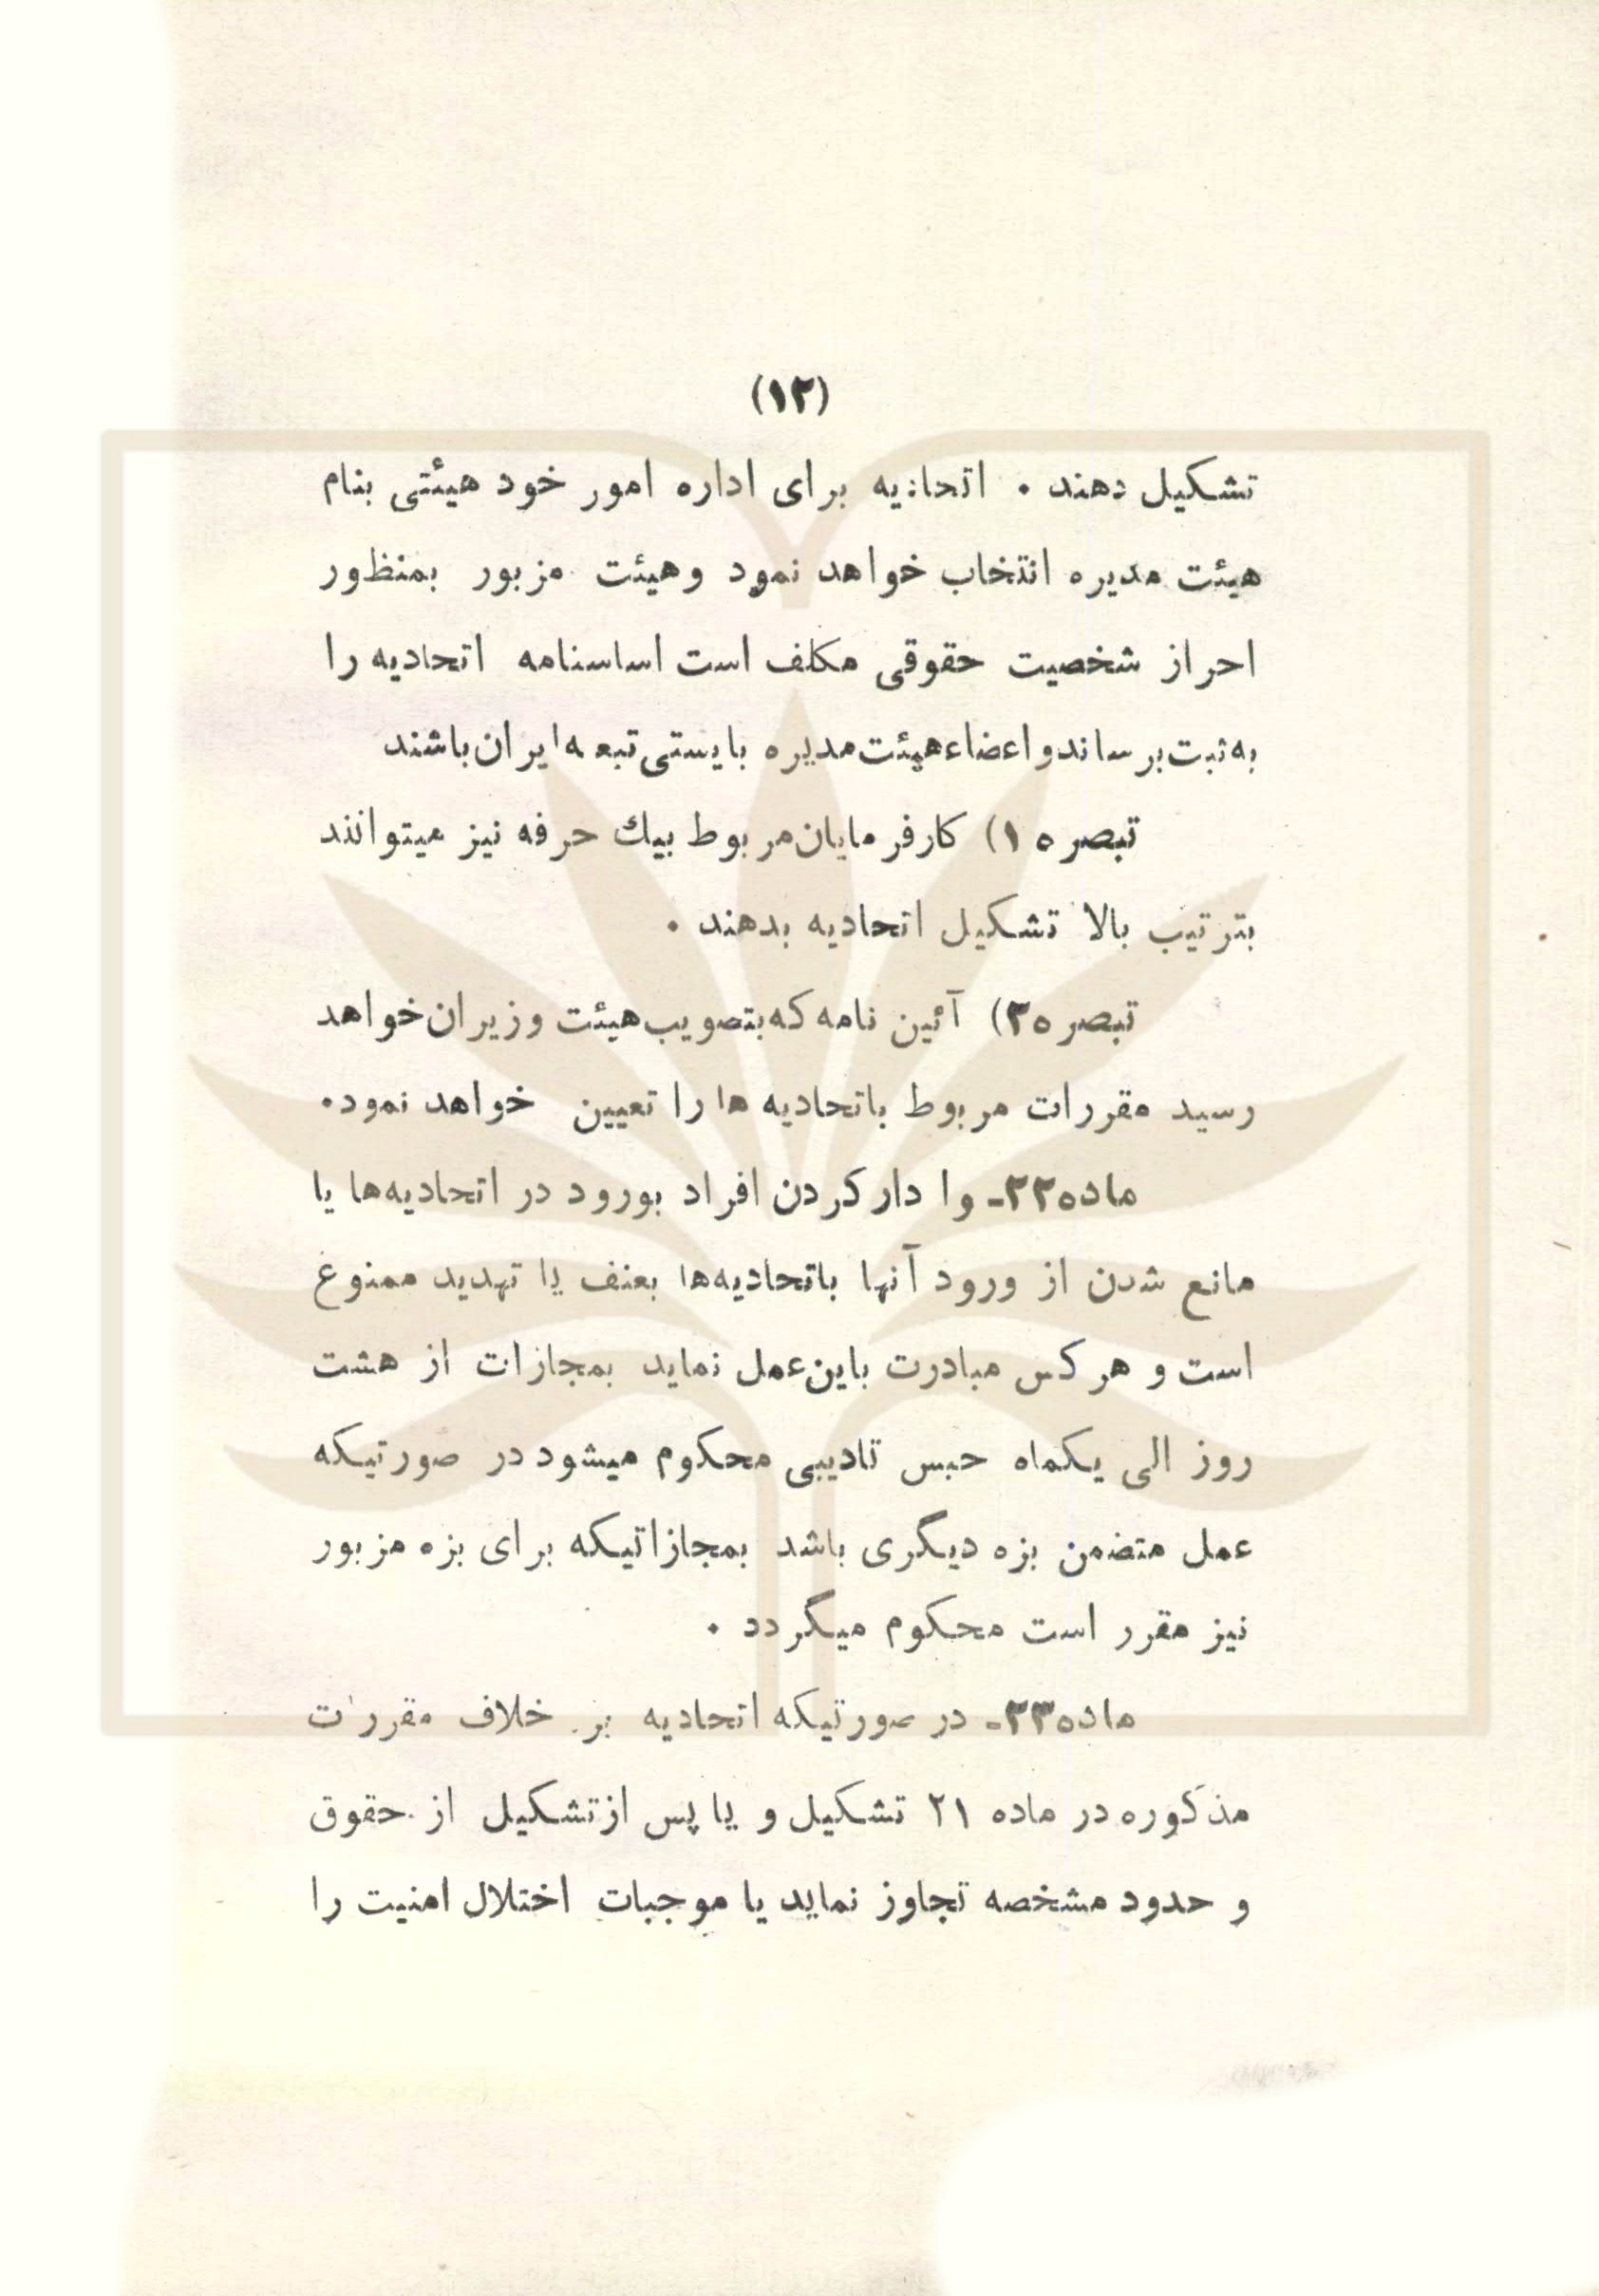 (۱۲)
تشکیل دهند . اتحادیه برای اداره امور خود هیئتی بنام
هیئت مدیره انتخاب خواهد نمود وهیئت مزبور بمنظور
احراز شخصیت حقوقی مکلف است اساسنامه اتحادیه را
به ثبت برساند و اعضاء هیئت مدیره بایستی تبعه ایران باشند
تبصره ۱) کارفرمایان مربوط بیك حرفه نیز میتوانند
بترتیب بالا تشکیل اتحادیه بدهند .
تبصره ۲) آئین نامه که بتصویب هیئت وزیران خواهد
رسید مقررات مربوط باتحادیه ها را تعیین خواهد نمود.
ماده ۲۲- وا دار کردن افراد بورود در اتحادیه‌ها یا
مانع شدن از ورود آنها باتحادیه‌ها بعنف یا تهدید ممنوع
است و هر کس مبادرت باین عمل نماید بمجازات از هشت
روز الی یکماه حبس تادیبی محکوم میشود در صورتیکه
عمل متضمن بزه دیگری باشد بمجازاتیکه برای بزه مزبور
نیز مقرر است محکوم میگردد .
ماده ۲۳- در صورتیکه اتحادیه بر خلاف مقررات
مذکوره در ماده ۲۱ تشکیل و یا پس از تشکیل از حقوق
و حدود مشخصه تجاوز نماید یا موجبات اختلال امنیت را